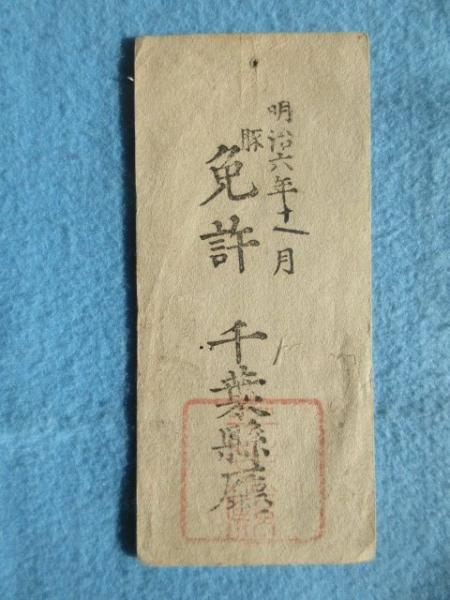 明治六年十一月
豚
免許
千葉縣廳